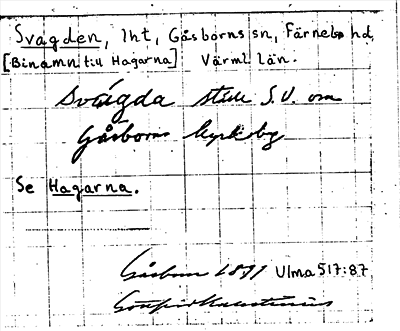 Svagden, lht, Gåsborns sn, Färnebo hd,
[Binamn till Hagarna] Värml. län.
Svagda ställe S.V. om
Gåsborns kyrkoby
Se Hagarna.
Gåsborn 1891 Ulma 517:87
Gottfrid Kallstenius